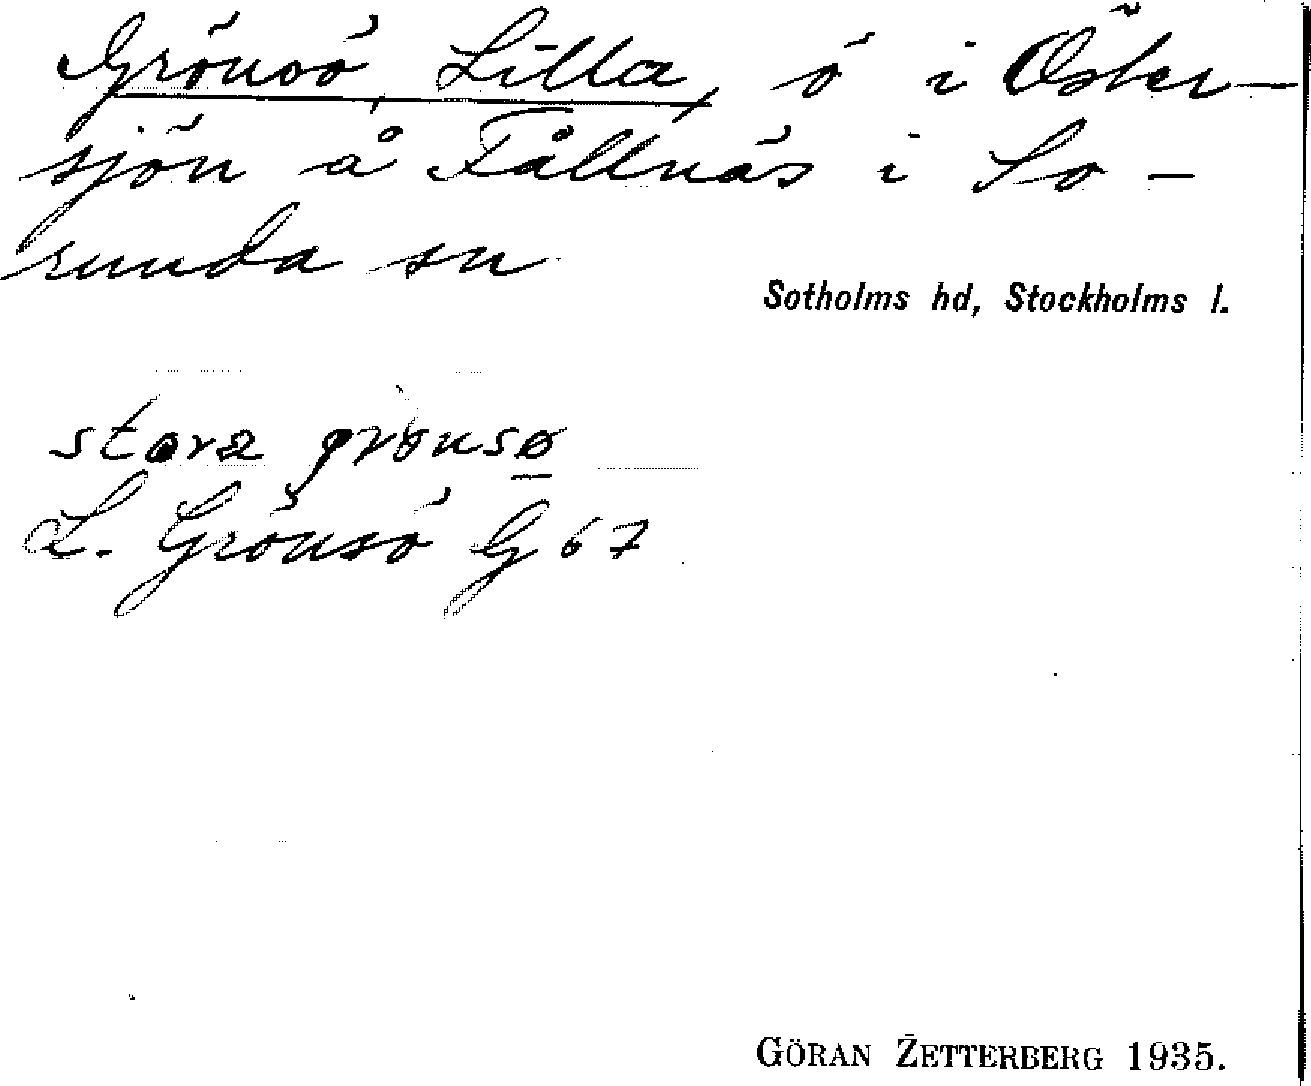 Grönsö, Lilla, ö i Öster-
sjön å Fållnäs i So-
runda sn
Sotholms hd, Stockholms l.
stora grønsø
L. Grönsö G 67
GÖRAN ZETTERBERG 1935.